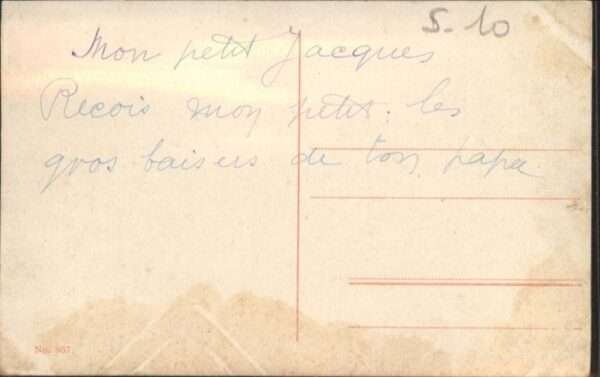 5-10
Mon petit Jacques
Recois mon petit. les
gros baisers de ton papa
No. 957